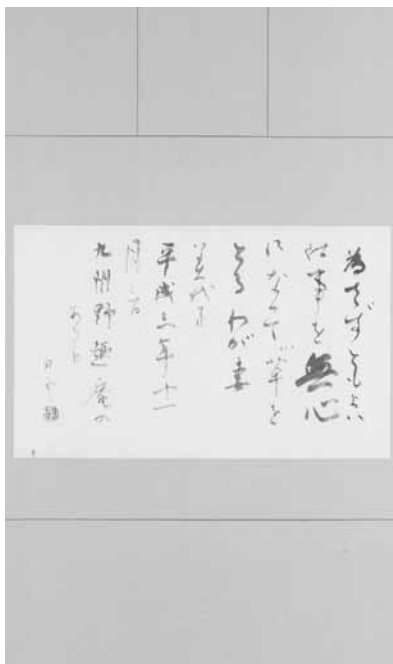 為さずともよい
仕事を無心
になって筆を
とるわが妻
美代子
平成三年十一
月
九州野
庵の